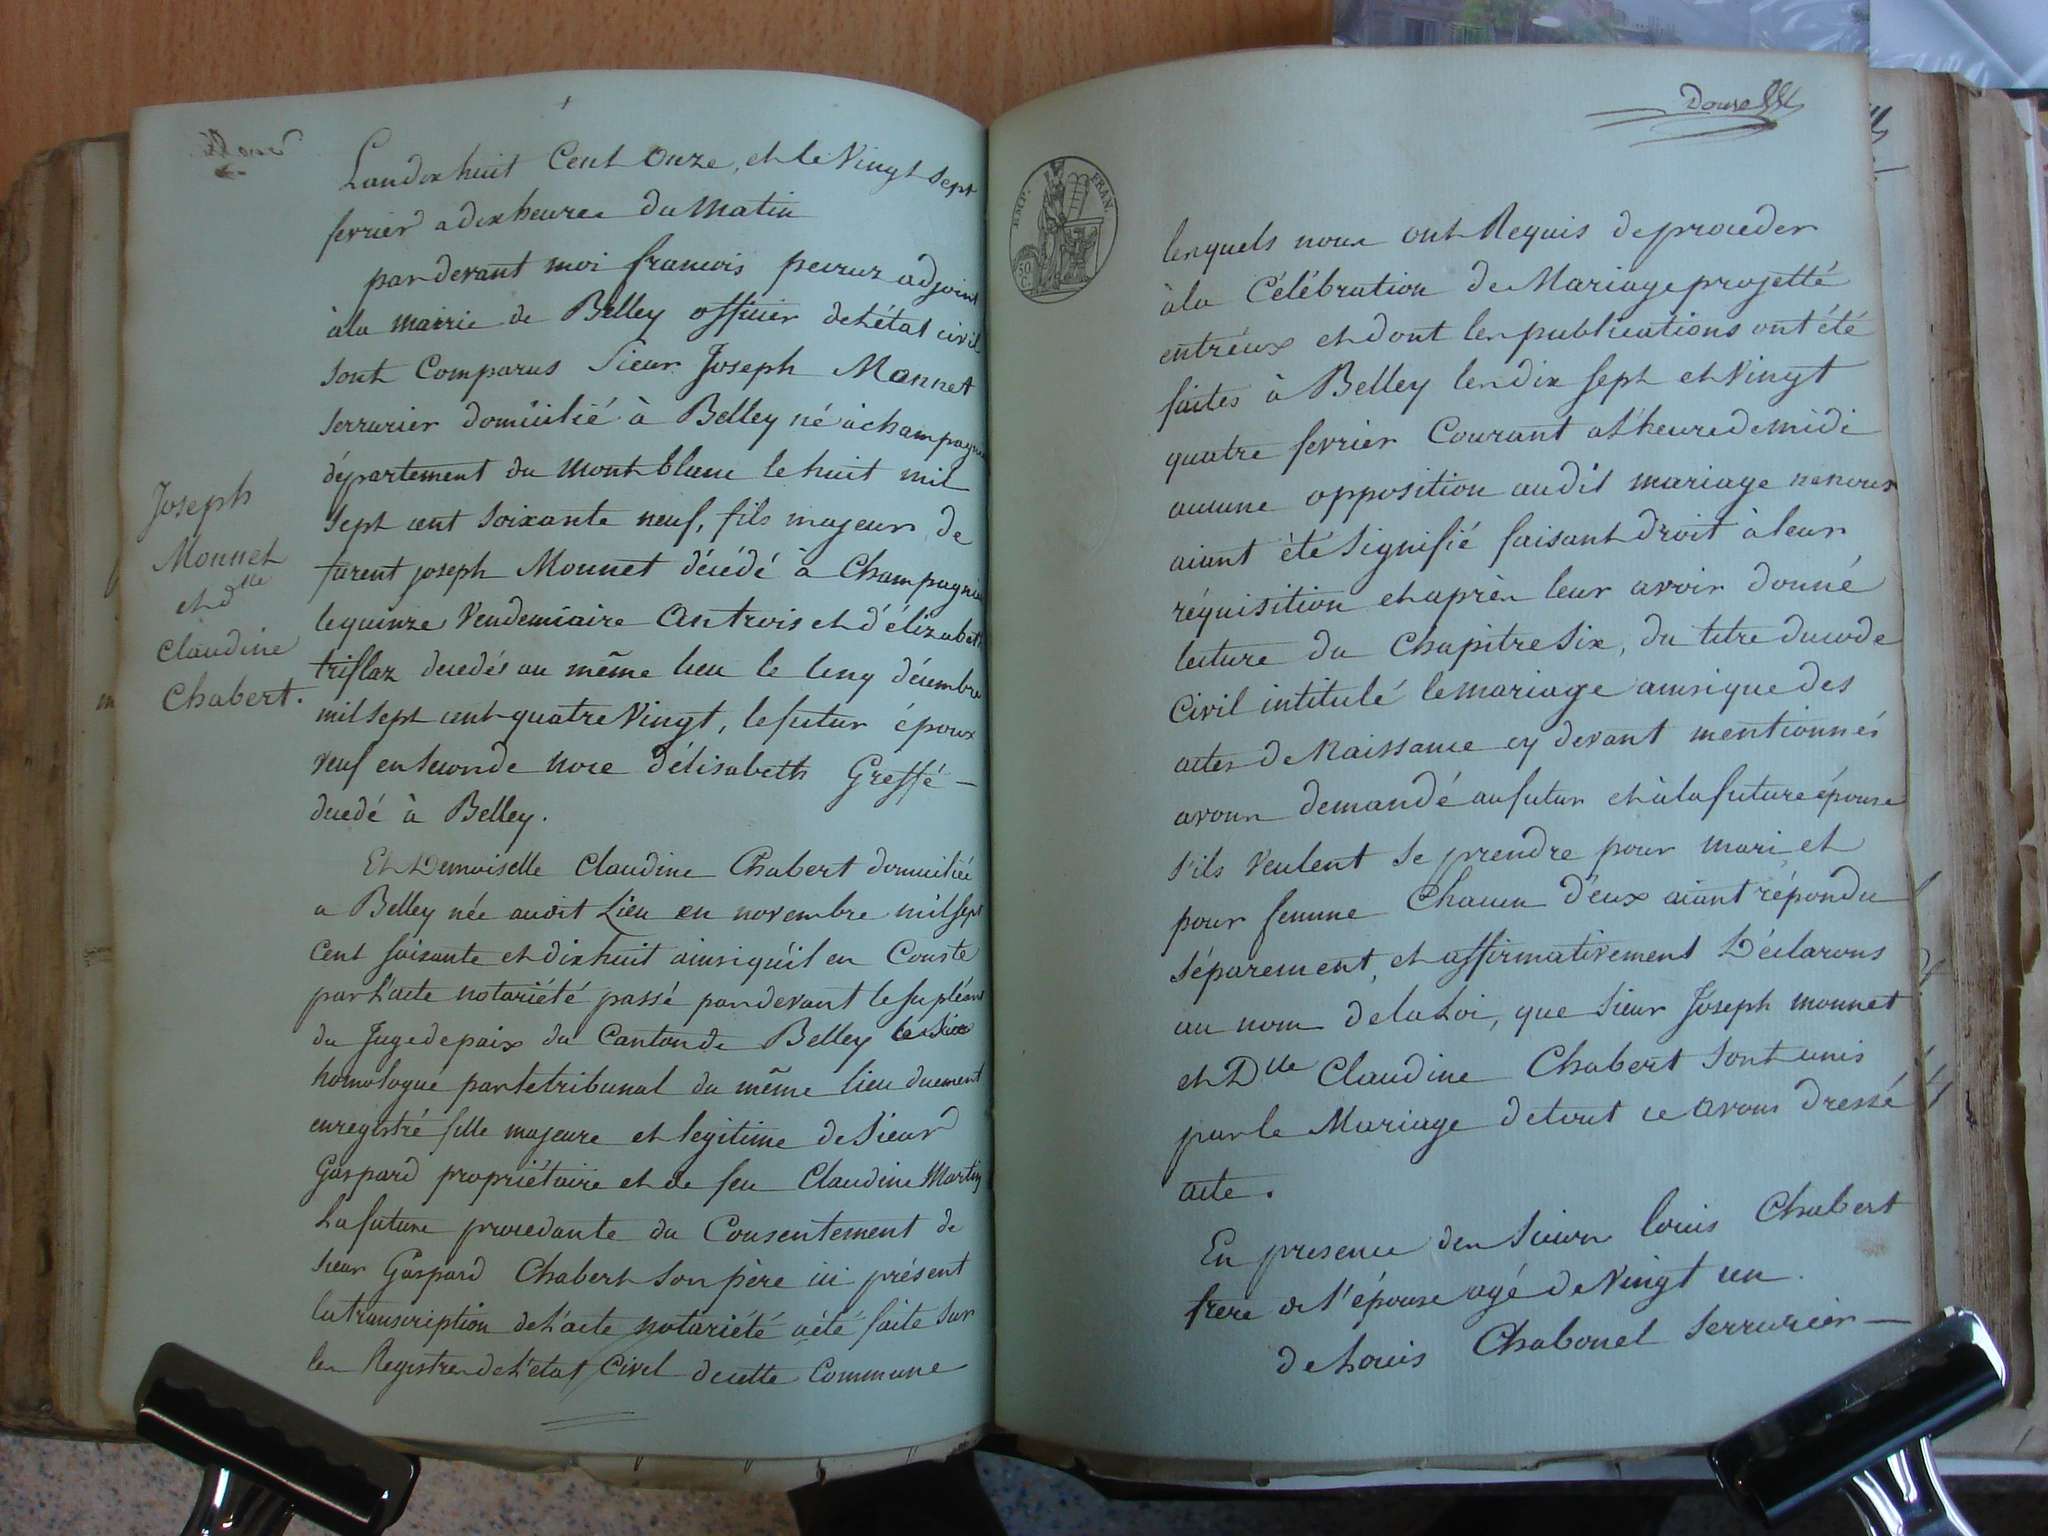 L'an dix huit Cent Onze, et le Vingt sept
fevrier a dix heures du Matin
par devant moi francois peuruz adjoint
à la mairie de Belley officier de L'état civil
sont Comparus Sieur Joseph Monnet
serrurier domicilié à Belley né à champagneu
département du Mont blanc le huit mil
sept cent soixante neuf, fils majeur de
furent joseph Monnet décédé à Champagneu
le quinze Vendemiaire An trois et d'élizabeth
triflaz decedés au même lieu le cinq décembre
mil sept cent quatre Vingt, le futur époux
veuf en seconde noce d'élisabeth Greffé —
decedé à Belley.
Joseph
Monnet
et dlle
Claudine
Chabert.
Et Demoiselle Claudine Chabert domiciliée
a Belley née audit Lieu en novembre mil sept
cent soixante et dix huit ainsi qu'il en Conste
par L'acte notariété passé par devant le supléant
du Juge de paix du Canton de Belley
homologué par le tribunal du même lieu duement
enregistré fille majeure et legitime de Sieur
Gaspard propriétaire et de feu Claudine Martin
La future procedante du Consentement de
sieur Gaspard Chabert son père ici présent
la transcription de L'acte notariété a été faite sur
les Registres de L'état Civil de cette Commune
EMP. FRAN.
50 C.
lesquels nous ont Requis de proceder
à la Célébration de Mariage projetté
entréux et dont les publications ont été
faites à Belley les dix sept et Vingt
quatre fevrier Courant a L'heure de midi
aucune opposition audit mariage ne nous
aiant été signifié faisant droit à leur
réquisition et après leur avoir donné
lecture du Chapitre Six, du titre du code
Civil intitulé le mariage ainsi que des
actes de Naissance cy devant mentionnés
avons demandé au futur et à la future épouse
s'ils veulent se prendre pour mari et
pour femme Chacun d'eux aiant répondu
séparement, et affirmativement Déclarons
au nom de la Loi, que Sieur Joseph monnet
et Dlle Claudine Chabert sont unis
par le Mariage de tout ce avons dressé
acte.
En presence des Sieurs Louis Chabert
frere de l'épouse agé de Vingt un
de Louis Chabonel serrurier —